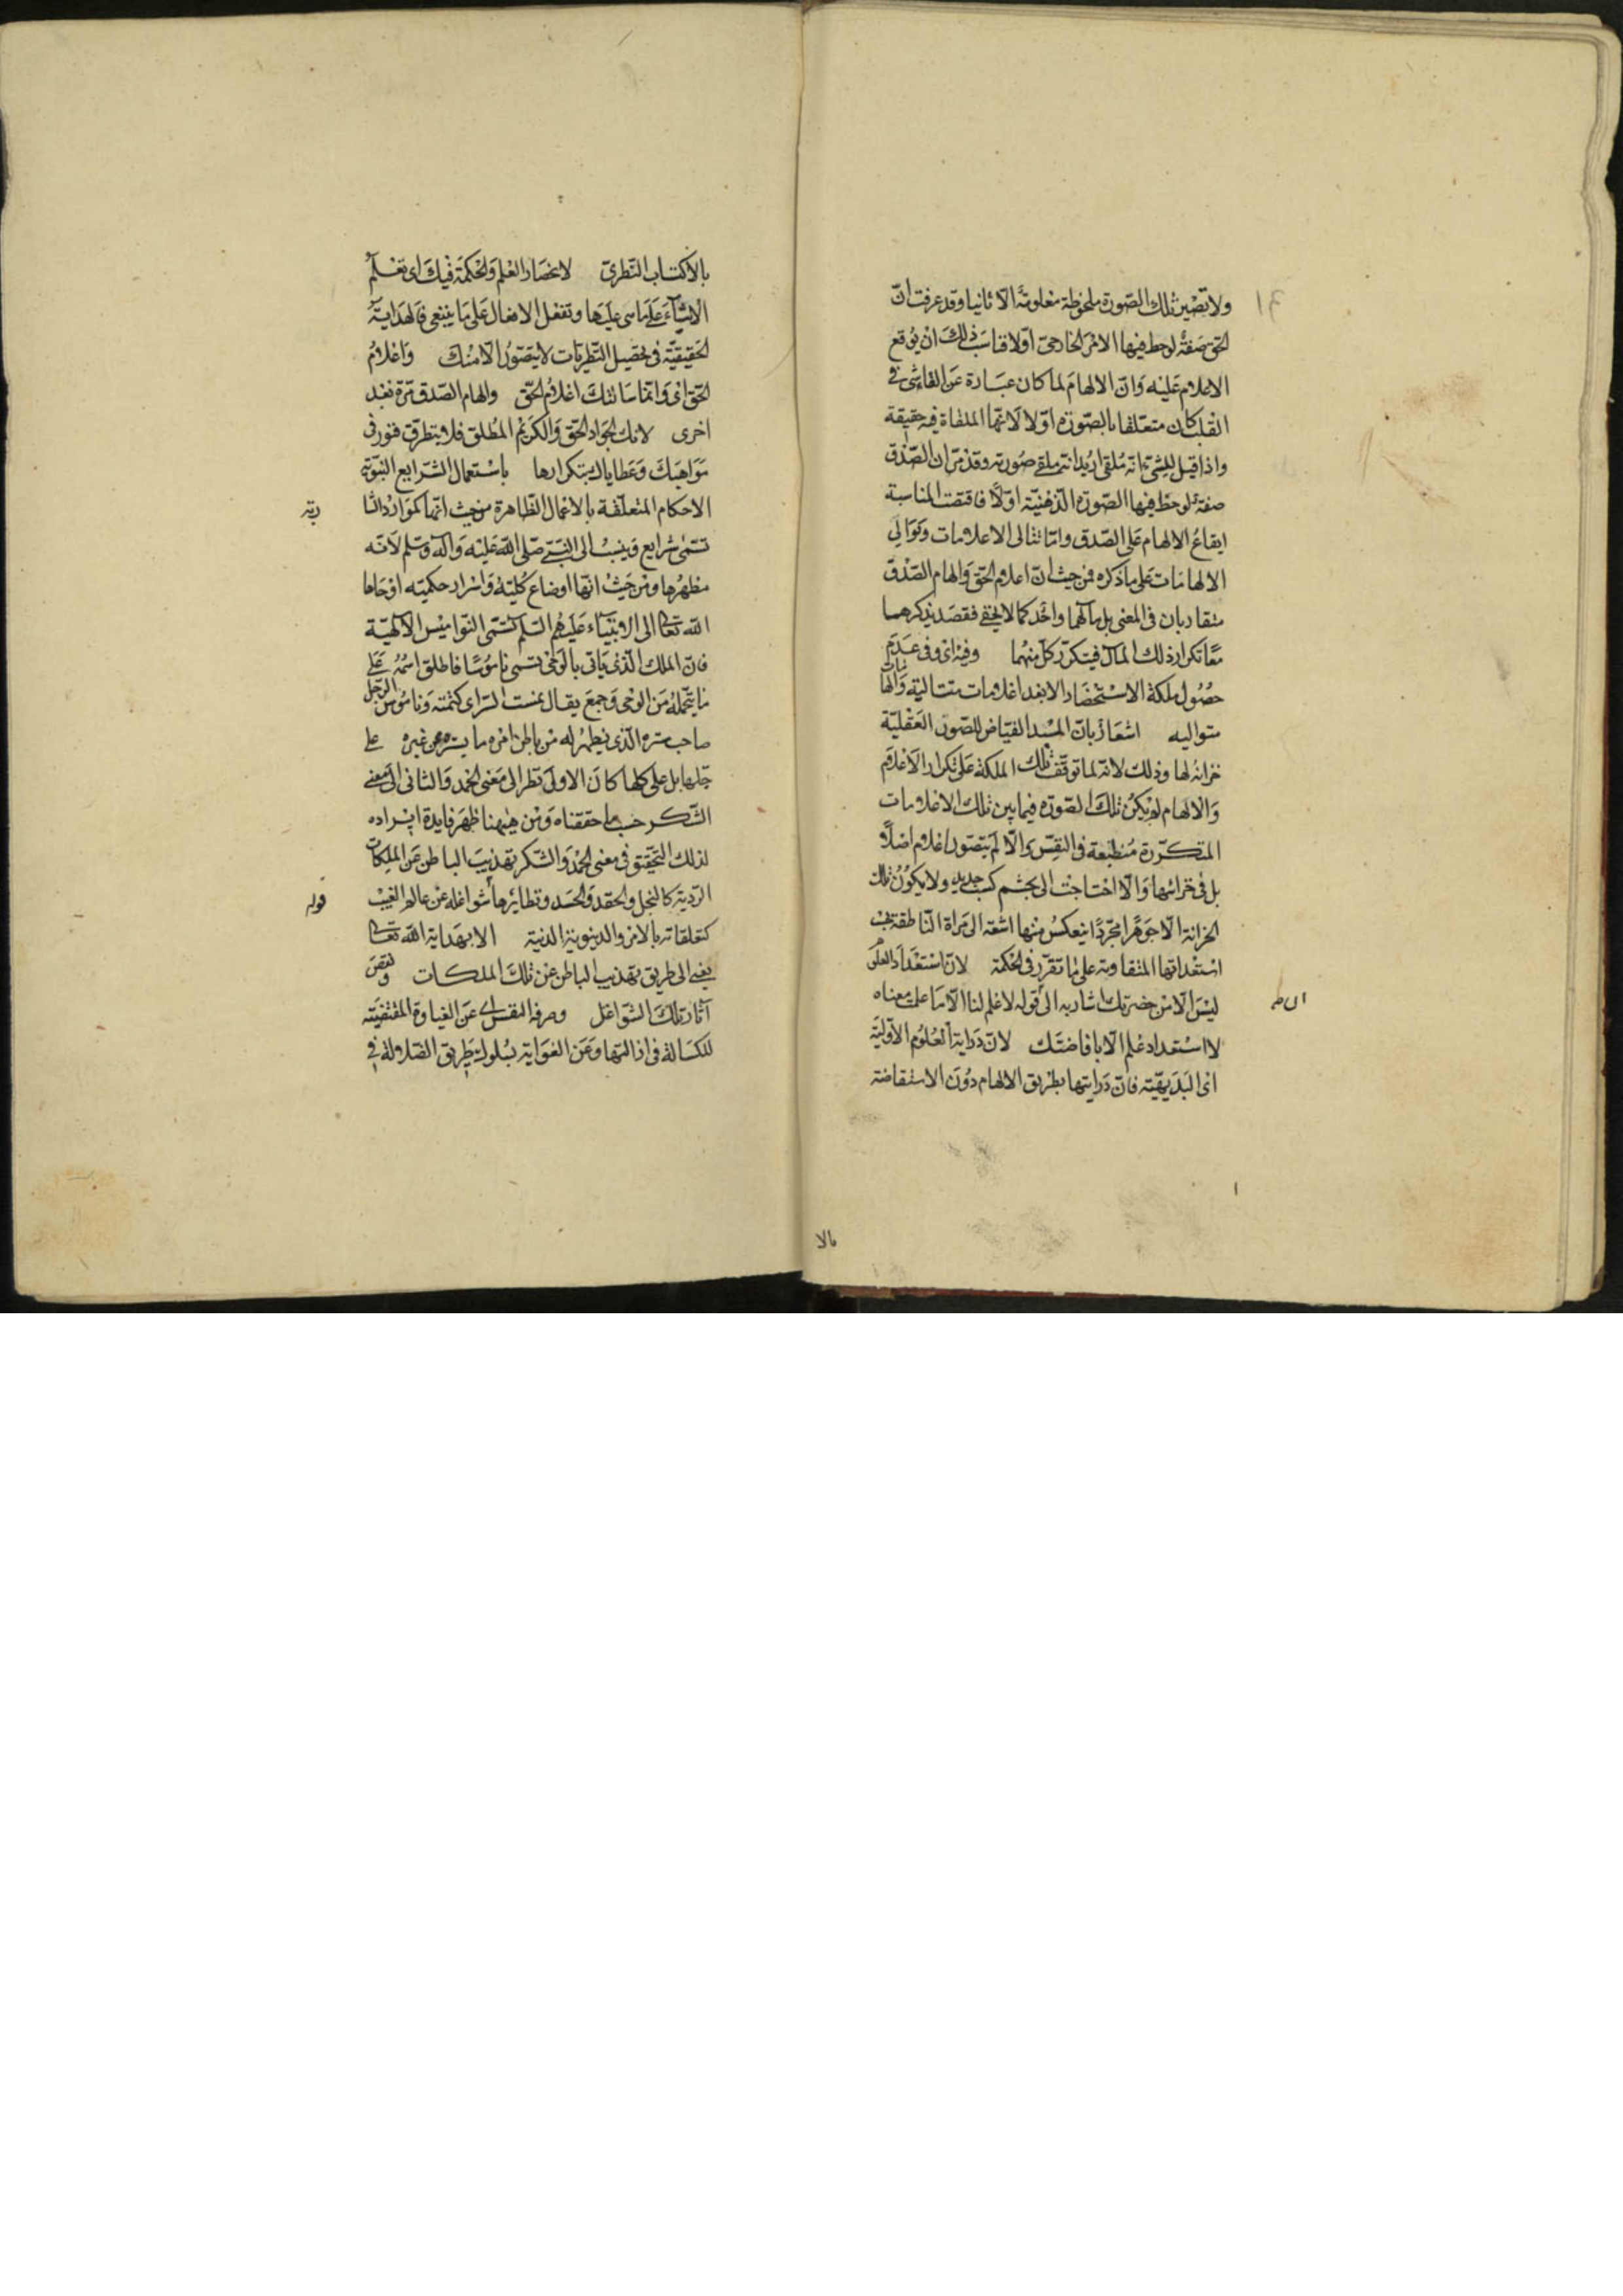 ولا تصير تلك الصورة ملحوظة معلومة الا ثانيا وقد عرفت ان
الحق صفة لوحظ فيها الامر الخارجى اولا فناسب ذلك ان يوقع
الاعلام عليه وان الالهام لما كان عبارة عن القاء شئ فى
القلب كان متعلقا بالصورة اولا لانها الملقاة فيه حقيقة
واذا قيل للشئ انه ملقى اريد انه ملقى صورته وقد مر ان الصدق
صفة لوحظ فيها الصورة الذهنية اولا فاقتضت المناسبة
ايقاع الالهام على الصدق واما تتالى الاعلامات وتوالى
الالهامات على ما ذكره فمن حيث ان اعلام الحق والهام الصدق
متقاربان فى المعنى بل مآلهما واحد كما لا يخفى فقصد بذكرهما
معا تكرار ذلك المآل فيتكرر كل منهما وفيه اى وفى عدم
حصول ملكة الاستحضار الا بعد اعلامات متتالية والهامات
متواليه اشعار بان المبدا الفياض للصور العقلية
خزانة لها وذلك لانه لما توقف تلك الملكة على تكرار الاعلام
والالهام لم يكن تلك الصورة فيما بين تلك الاعلامات
المتكررة منطبعة فى النفس والا لم يتصور اعلام اصلا
بل فى خزانتها والا احتاجت الى تجشم كسب جديد ولا يكون تلك
الخزانة الا جوهرا مجردا ينعكس منها اشعة الى مراة الناطقة بحسب
استعداتها المتفاوتة على ما تقرر فى الحكمة لان استعداد العلم
ليس الا من حضرتك اشار به الى قوله لا علم لنا الا ما علمت معناه
لا استعداد علم الا بافاضتك لان دراية العلوم الاولية
اى البديهية فان درايتها بطريق الالهام دون الاستفاضة
بالا
بالاكتساب النظرى لانحصار العلم والحكمة فيك اى تعلم
الاشياء على ما هى عليها وتفعل الافعال على ما ينبغى فالهداية
الحقيقية فى تحصيل النظريات لا يتصور الا منك واعلام
الحق اى وانما سالتك اعلام الحق والهام الصدق مرة بعد
اخرى لانك الجواد الحق والكريم المطلق فلا يتطرق فتور فى
مواهبك وعطاياك بتكرارها باستعمال الشرايع النبوية
الاحكام المتعلقة بالاعمال الظاهرة من حيث انها كموارد الشا
ربة
تسمى شرايع وينسب الى النبى صلى الله عليه وآله وسلم لانه
مظهرها ومن حيث انها اوضاع كلية واسرار حكمية اوحاها
الله تعالى الى الانبياء عليهم السلم تسمى النواميس الالهية
فان الملك الذى ياتى بالوحى تسمى ناموسا فاطلق اسمه على
ما يتحمله من الوحى وجمع يقال نمست السر اى كتمته وناموس الرجل
صاحب سره الذى يطهر له من باطن امره ما يستره عن غيره على
جلها بل على كلها كان الاولى نظر الى معنى الحمد والثانى الى معنى
الشكر حسب ما حققناه ومن هيهنا ظهر فايدة ايراده
لذلك التحقيق فى معنى الحمد والشكر تهذيب الباطن عن الملكات
الردية كالبخل والحقد والحسد ونظائرها شواغله عن عالم الغيب
قوله
كتعلقاته بالامور الدينوية الدنية الا بهداية الله تعالى
يعنى الى طريق تهذيب الباطن عن تلك الملكات ونفض
آثار تلك الشواغل وصرفه النفس اى عن الغباوة المقتضية
للكسالة فى ازالتها وعن الغواية بسلوك طريق الضلالة فى